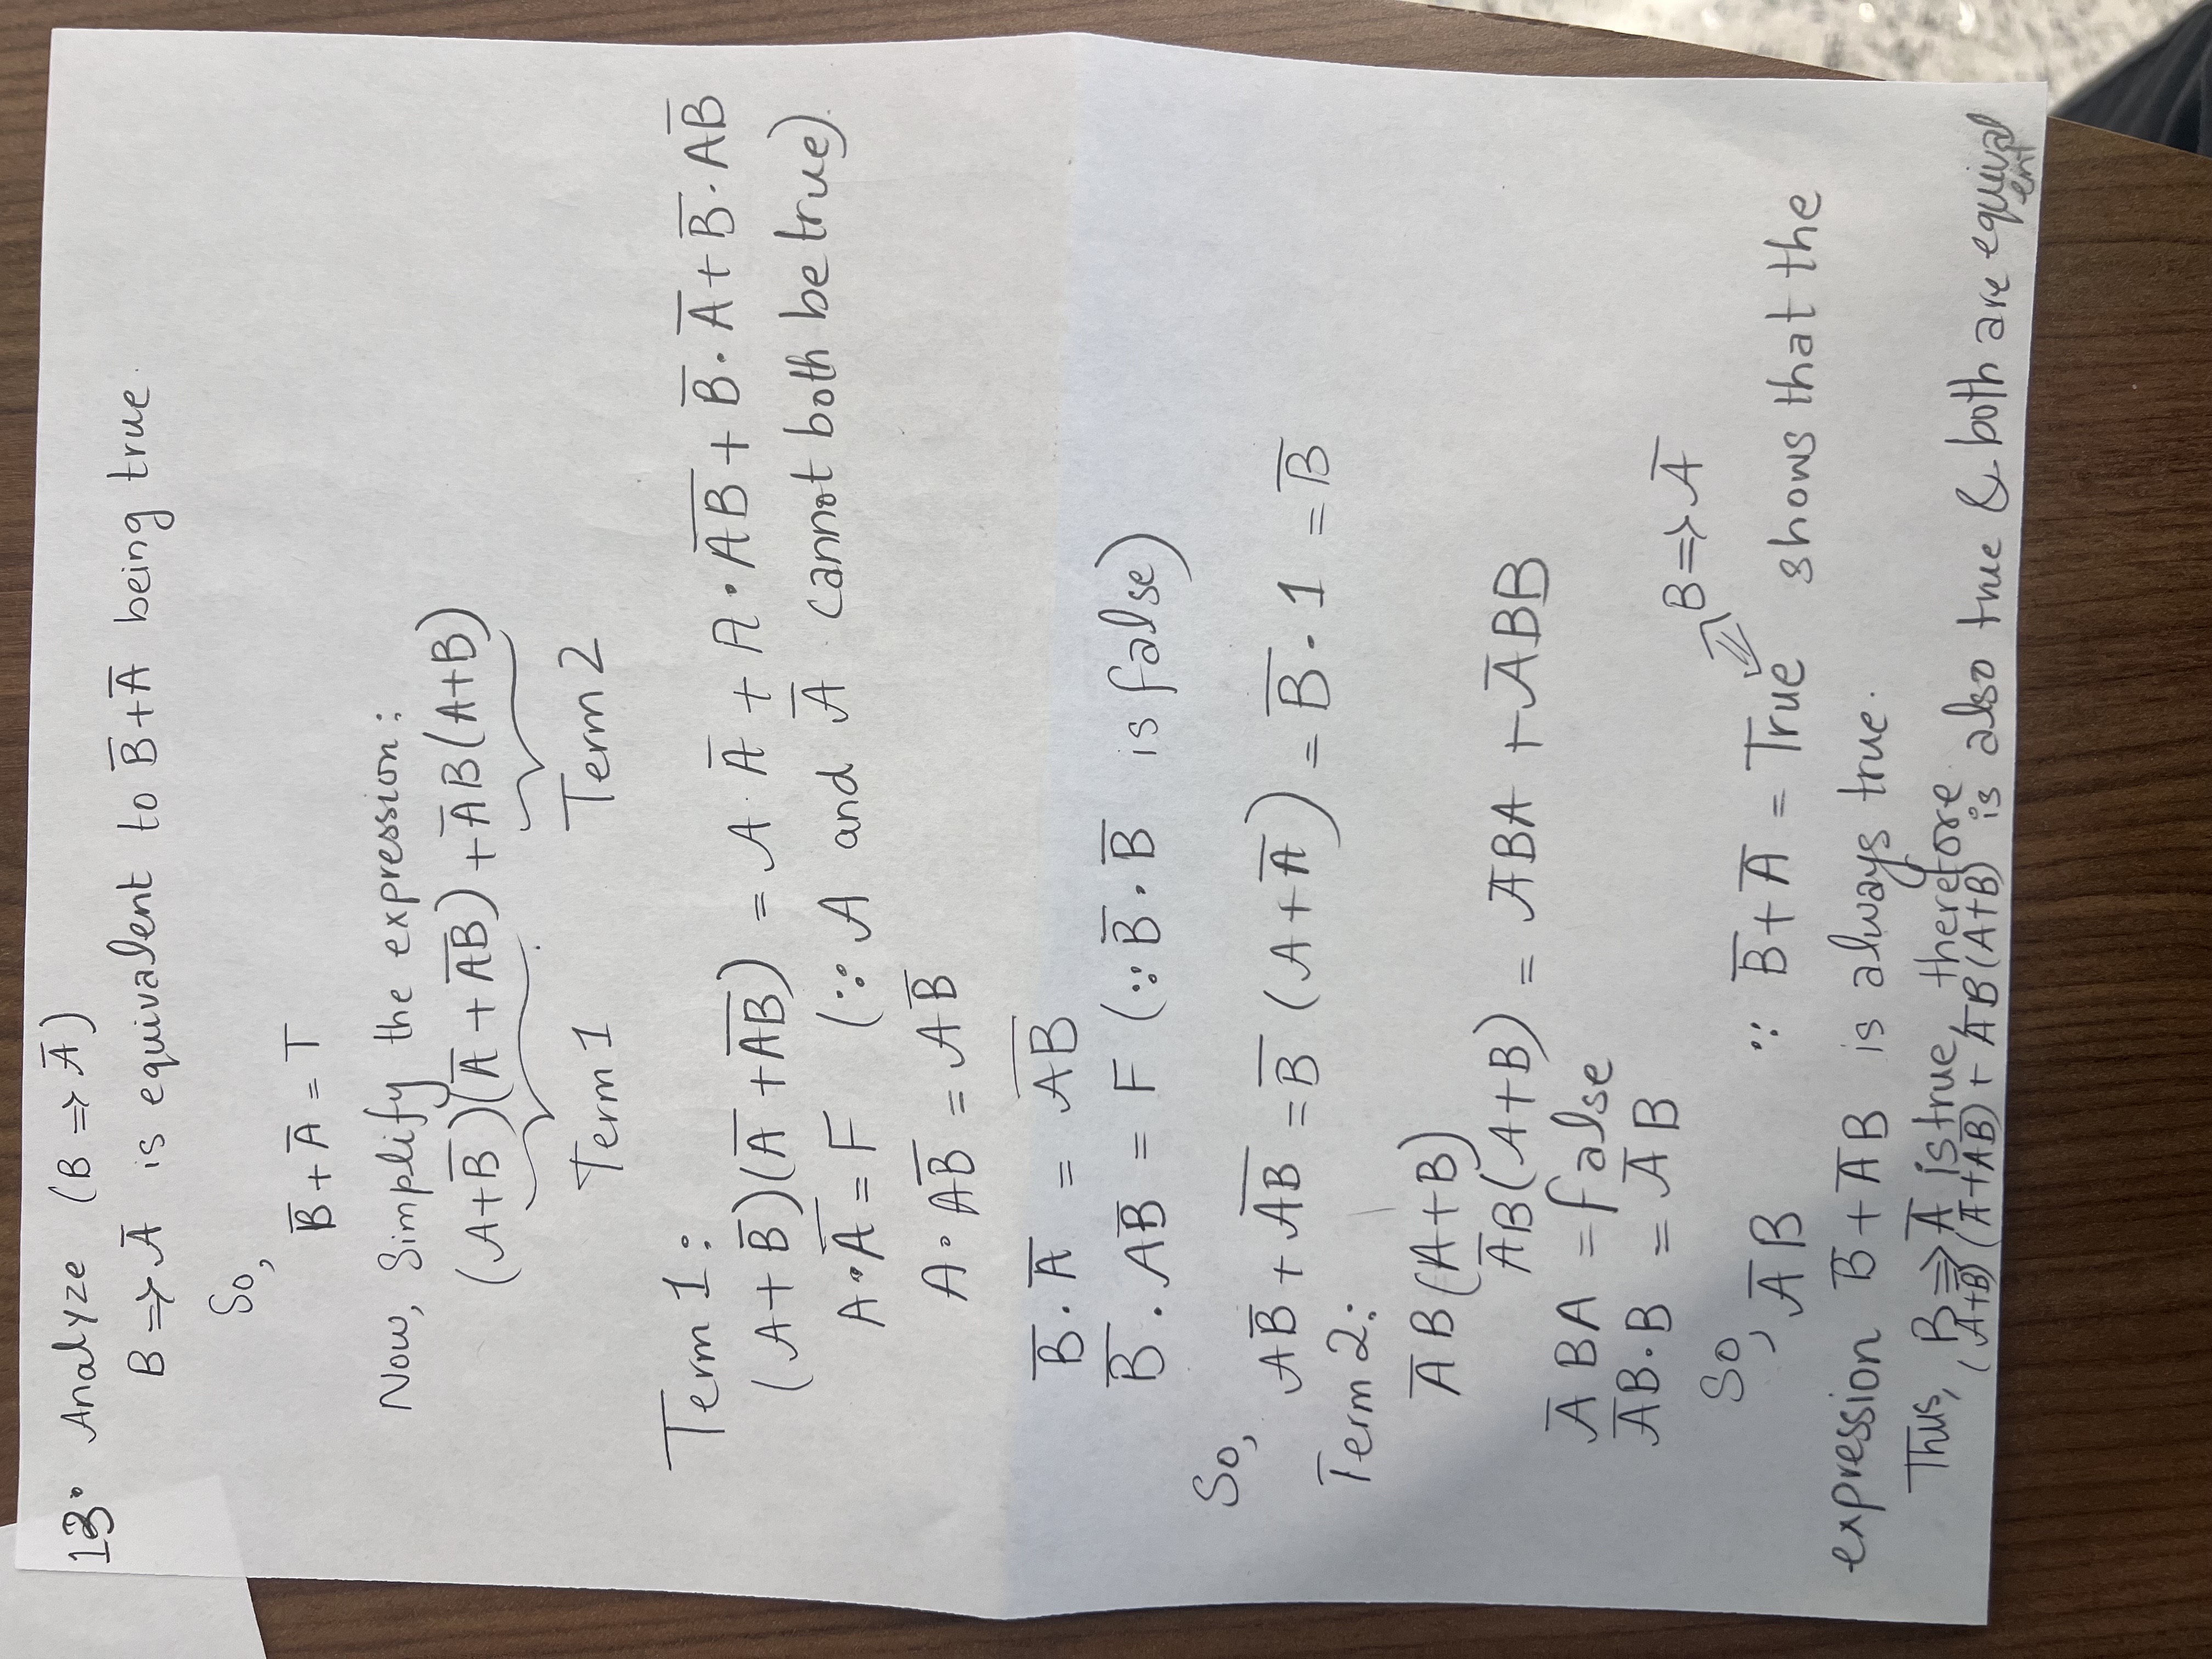 13. Analyze (B ⇒ A̅)
B ⇒ A̅ is equivalent to B̅ + A̅ being true.
So,
B̅ + A̅ = T
Now, Simplify the expression:
(A + B̅)(A̅ + A̅B̅) + A̅B(A+B)
Term 1 Term 2
Term 1:
(A + B̅)(A̅ + A̅B̅) = A · A̅ + A · A̅B̅ + B̅ · A̅ + B̅ · AB̅
A · A̅ = F (∵ A and A̅ cannot both be true).
A · AB̅ = AB̅
B̅ · A̅ = A̅B̅
B̅ . AB̅ = F (∵ B̅ · B̅ is false)
So,
AB̅ + A̅B̅ = B̅ (A + A̅) = B̅ · 1 = B̅
Term 2:
A̅B(A+B)
A̅B(A+B) = A̅BA + A̅BB
A̅BA = false
A̅B·B = A̅B
B ⇒ A̅
So, A̅B ∵ B̅ + A̅ = True shows that the
expression B̅ + A̅B is always true.
Thus, B ⇒ A̅ is true, therefore
(A+B̅)(A̅+AB̅) + A̅B(A+B) is also true & both are equivalent